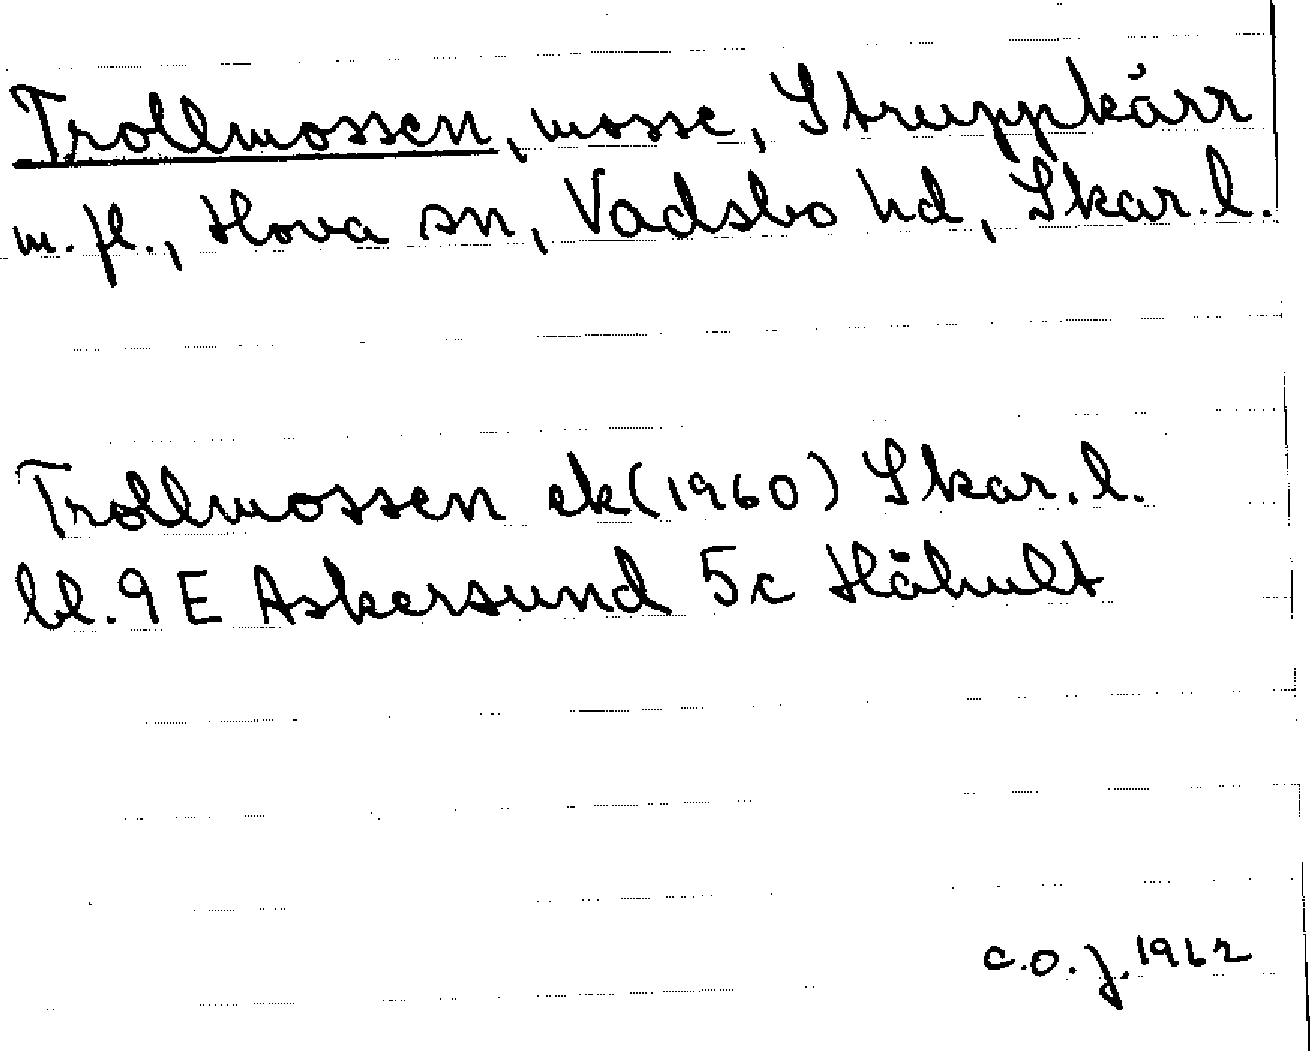 Trollmossen, mosse, Struppkärr
m. fl., Hova sn, Vadsbo hd, Skar. l.
Trollmossen ek (1960) Skar. l.
bl. 9 E Askersund 5c Håhult
C.O.J. 1962